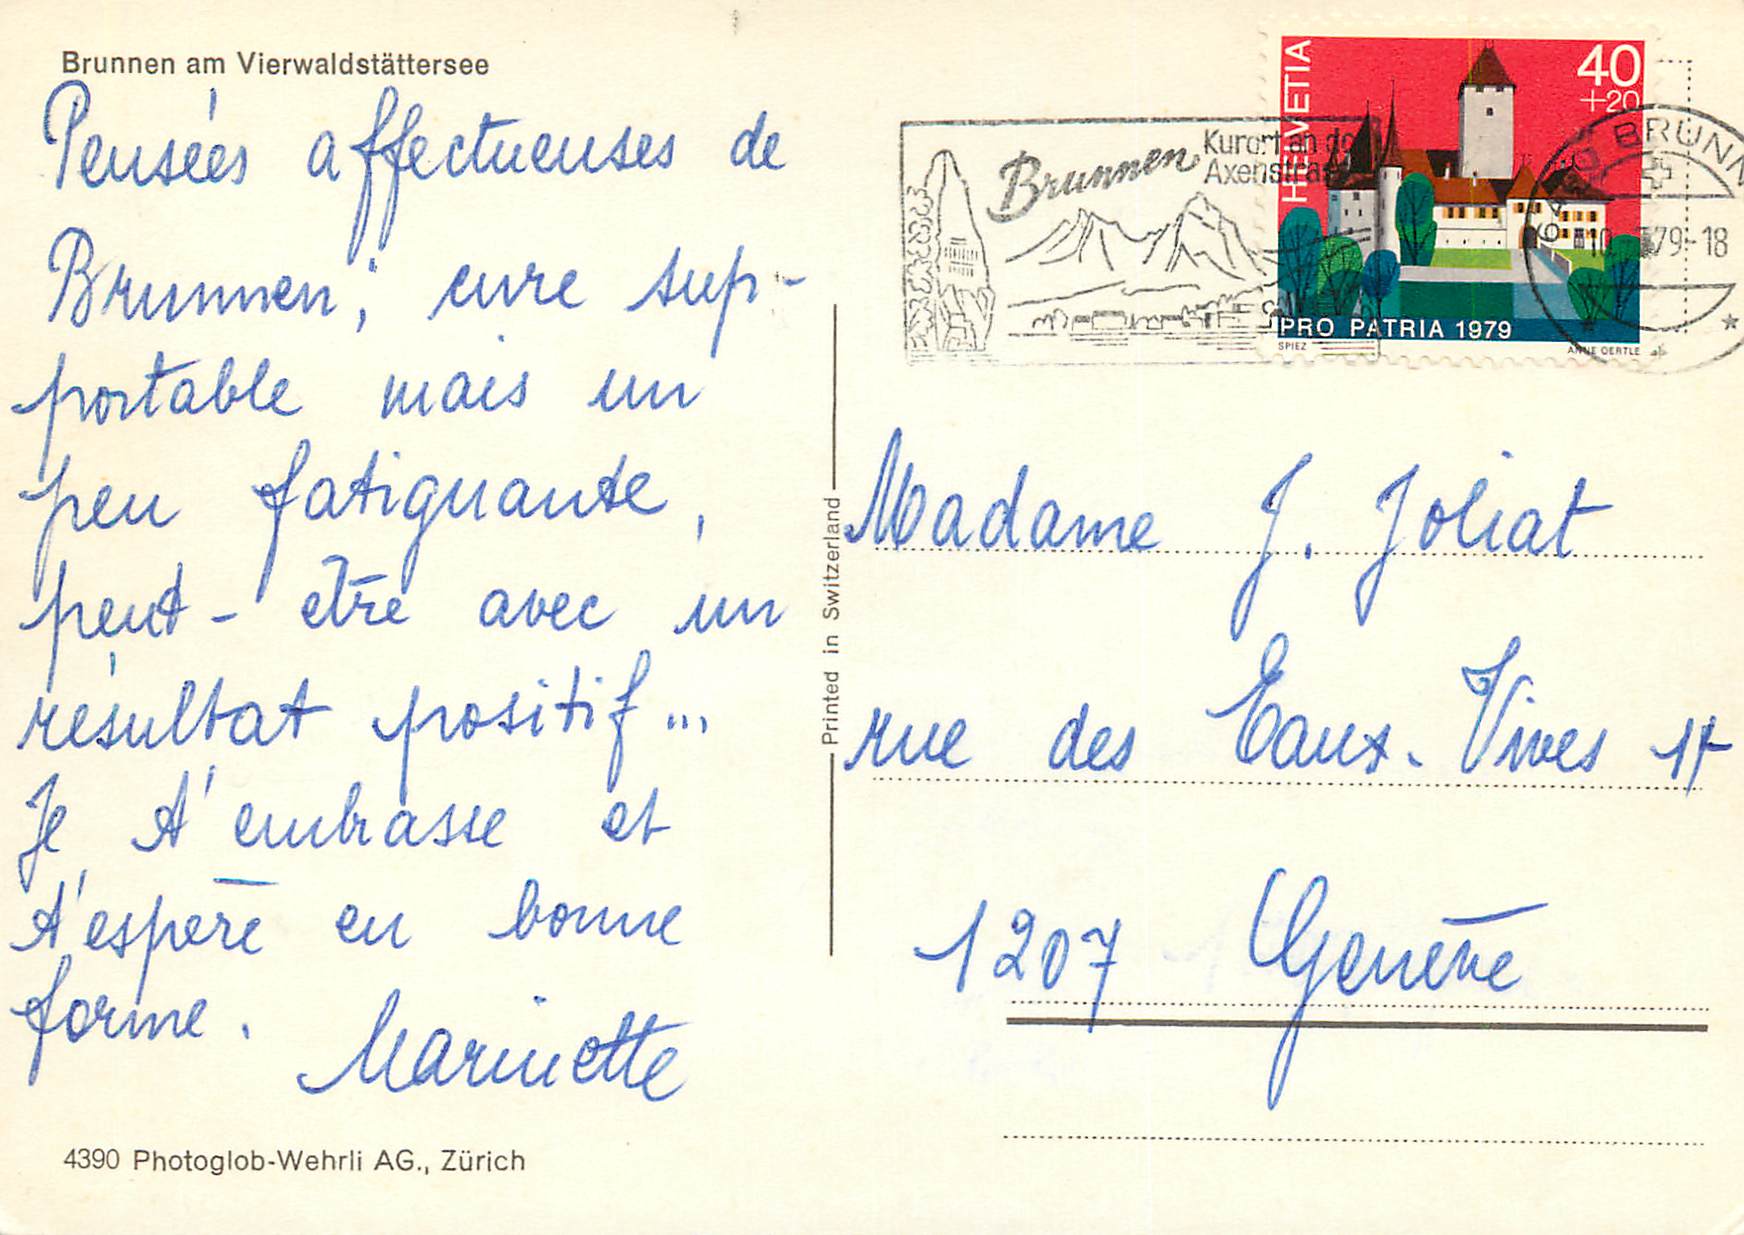 Brunnen am Vierwaldstättersee
Pensées affectueuses de
Brunnen, cure sup-
portable mais un
peu fatiguante,
peut-être avec un
résultat positif...
Je t'embrasse et
t'espère en bonne
forme.
Marinette
4390 Photoglob-Wehrli AG., Zürich
Printed in Switzerland
Brunnen
Kurort an de
Axenstra
HELVETIA
40
+20
PRO PATRIA 1979
SPIEZ
ANNE OERTLE
BRUNN
10. 79-18
Madame J. Joliat
rue des Eaux-Vives 17
1207 Genève